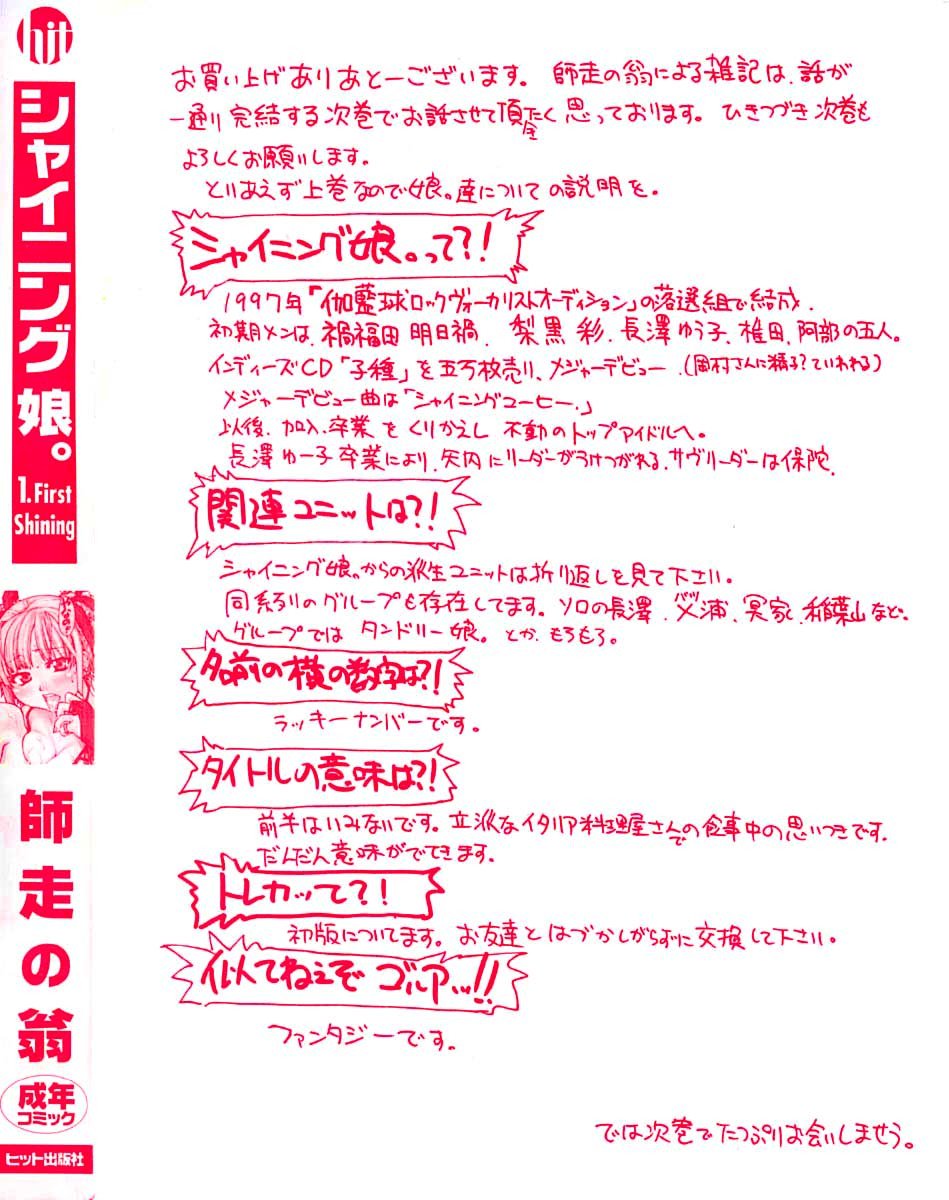 hit
シャイニング娘。
1. First
Shining
師走の翁
成年
コミック
ヒット出版社
お買い上げありあとーございます。 師走の翁による雑記は、話が
一通り完結する次巻でお話させて頂きたく思っております。 ひきつづき次巻も
よろしくお願いします。
とりあえず上巻なので娘。達についての説明を。
シャイニング娘。って?!
1997年「伽藍球ロックヴォーカリストオーディション」の落選組で結成.
初期メンは、禍福田 明日禍、 梨黒 彩、長澤ゆう子、椎田、阿部の五人。
インディーズCD「子種」を五万枚売り、メジャーデビュー.(岡村さんに精子?ていわれる)
メジャーデビュー曲は「シャイニングコーヒー.」
以後、加入、卒業をくりかえし 不動のトップアイドルへ。
長澤ゆー子卒業により、矢内にリーダーがうけつがれる、サヴリーダーは保陀.
関連ユニットは?!
シャイニング娘。からの派生ユニットは折り返しを見て下さい。
同系列のグループも存在してます。ソロの長澤、浦、冥家、稲葉山など。
グループでは タンドリー娘。とか、もろもろ。
名前の横の数字は?!
ラッキーナンバーです。
タイトルの意味は?!
前半はいみないです。立派なイタリア料理屋さんでの食事中の思いつきです.
だんだん意味がでてきます.
トレカって?!
初版についてます。お友達とはづかしがらずに交換して下さい。
似てねぇぞ ゴルアッ!!
ファンタジーです。
では次巻でたっぷりお会いしませう。